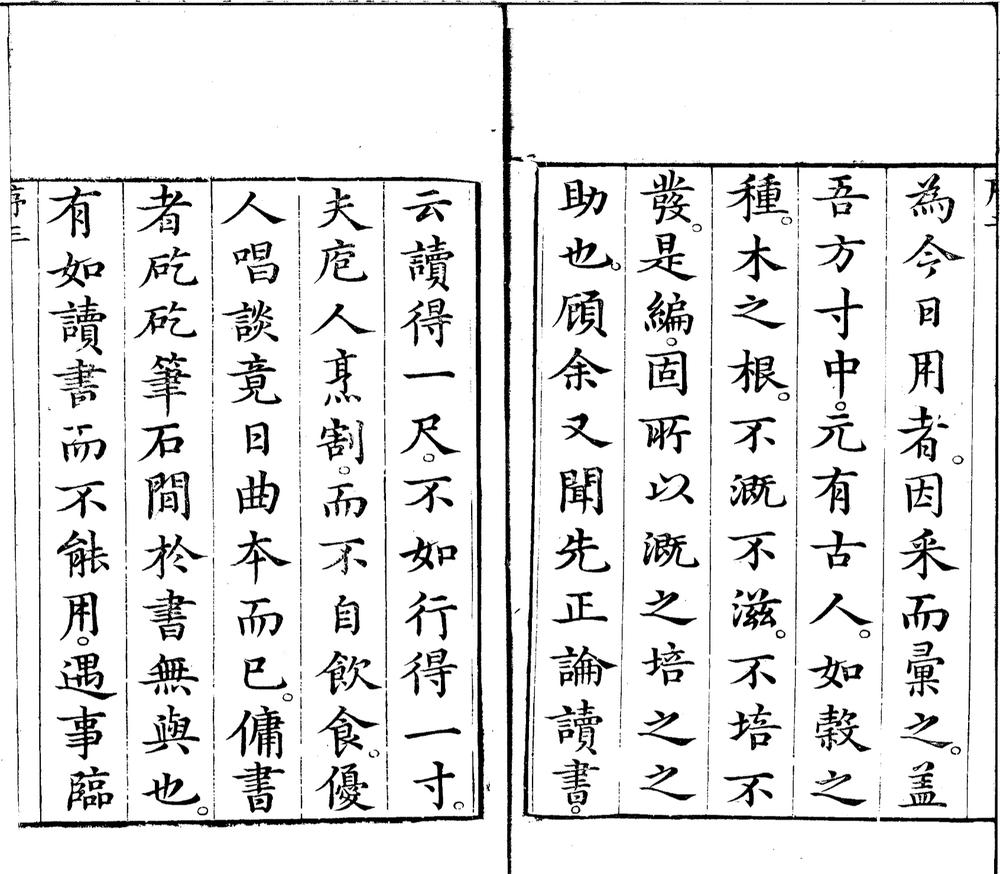 為今日用者。因采而彚之。盖
吾方寸中。元有古人。如穀之
種。木之根。不溉不滋。不培不
發。是編。固所以溉之培之之
助也。顧余又聞先正論讀書。
云讀得一尺。不如行得一寸。
夫庖人烹割。而不自飲食。優
人唱談竟日曲本而已。傭書
者矻矻筆石間於書無與也。
有如讀書而不能用。遇事臨
序三